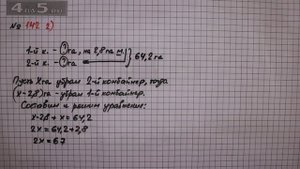 4на5.ru
№ 142 2)
1-й к. - ? га, на 2,8 га м.
2-й к. - ? га
64,2 га
Пусть x га убрал 2-й комбайнер, тогда
(x-2,8) га - убрал 1-й комбайнер.
Составим и решим уравнение:
x-2,8 + x = 64,2
2x = 64,2+2,8
2x = 67